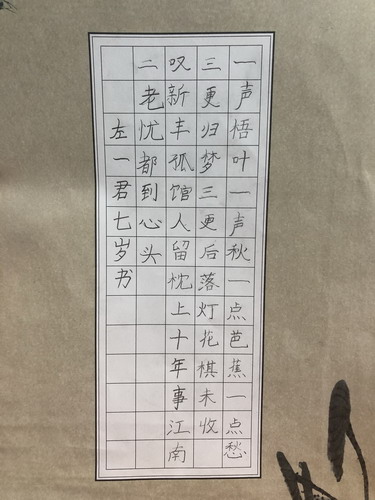 一声梧叶一声秋一点芭蕉一点愁
三更归梦三更后落灯花棋未收
叹新丰孤馆人留枕上十年事江南
二老忧都到心头
左一君七岁书